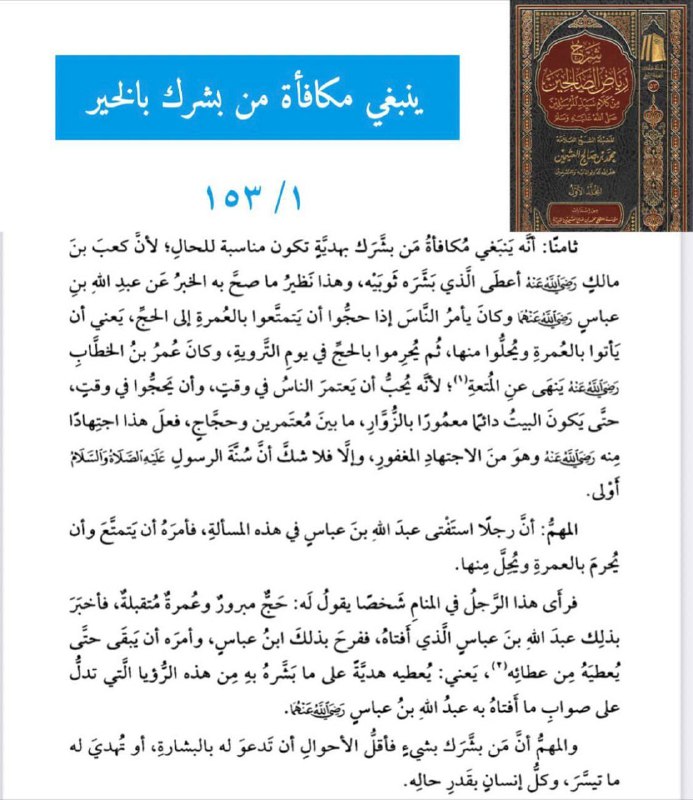 شرح
رياض الصالحين
من كلام سيد المرسلين
صلى الله عليه وسلم
لفضيلة الشيخ العلامة
محمد بن صالح العثيمين
المجلد الأول
ينبغي مكافأة من بشرك بالخير
١/ ١٥٣
ثامنًا: أنَّه يَنبَغي مُكافأةُ مَن بشَّرَك بهديَّةٍ تكون مناسبة للحال؛ لأنَّ كعبَ بنَ
مالكٍ رَضِيَ اللَّهُ عَنْهُ أعطَى الَّذي بَشَّرَه ثَوبَيْه، وهذا نَظيرُ ما صحَّ به الخبرُ عن عبدِ اللهِ بنِ
عباسٍ رَضِيَ اللَّهُ عَنْهُمَا وكانَ يأمرُ النَّاسَ إذا حجُّوا أن يَتمتَّعوا بالعُمرةِ إلى الحجِّ، يَعني أن
يَأتوا بالعُمرةِ ويُحلُّوا منها، ثُم يُحرِموا بالحجِّ في يومِ التَّرويةِ، وكانَ عُمرُ بنُ الخطَّابِ
رَضِيَ اللَّهُ عَنْهُ يَنهَى عنِ المُتعةِ(١)؛ لأنَّه يُحبُّ أن يَعتمرَ الناسُ في وقتٍ، وأن يَحجُّوا في وقتٍ،
حتَّى يَكونَ البيتُ دائمًا معمُورًا بالزُّوَّارِ، ما بينَ مُعتَمرين وحجَّاجٍ، فعلَ هذا اجتِهادًا
مِنه رَضِيَ اللَّهُ عَنْهُ وهوَ منَ الاجتهادِ المغفورِ، وإلَّا فلا شكَّ أنَّ سُنَّةَ الرسولِ عَلَيْهِ الصَّلَاةُ وَالسَّلَامُ
أَوْلى.
المهمُّ: أنَّ رجلًا استَفْتى عبدَ اللهِ بنَ عباسٍ في هذه المسألةِ، فأمرَهُ أن يَتمتَّعَ وأن
يُحرمَ بالعمرةِ ويُحِلَّ مِنها.
فرأَى هذا الرَّجلُ في المنامِ شَخصًا يقولُ لَه: حَجٌّ مبرورٌ وعُمرةٌ مُتقبلةٌ، فأخبَرَ
بذلِك عبدَ اللهِ بنَ عباسٍ الَّذي أفتاهُ، ففرحَ بذلكَ ابنُ عباسٍ، وأمرَه أن يَبقَى حتَّى
يُعطيَهُ مِن عطائِه(٢)، يَعني: يُعطيه هديَّةً على ما بَشَّرهُ بهِ مِن هذه الرُّؤيا الَّتي تدلُّ
على صوابِ ما أَفتاه به عبدُ اللهِ بنُ عباسٍ رَضِيَ اللَّهُ عَنْهُمَا.
والمهمُّ أنَّ مَن بشَّرَك بشيءٍ فأقلُّ الأحوالِ أن تَدعوَ له بالبشارةِ، أو تُهديَ له
ما تيسَّرَ، وكلُّ إنسانٍ بقَدرِ حالِه.